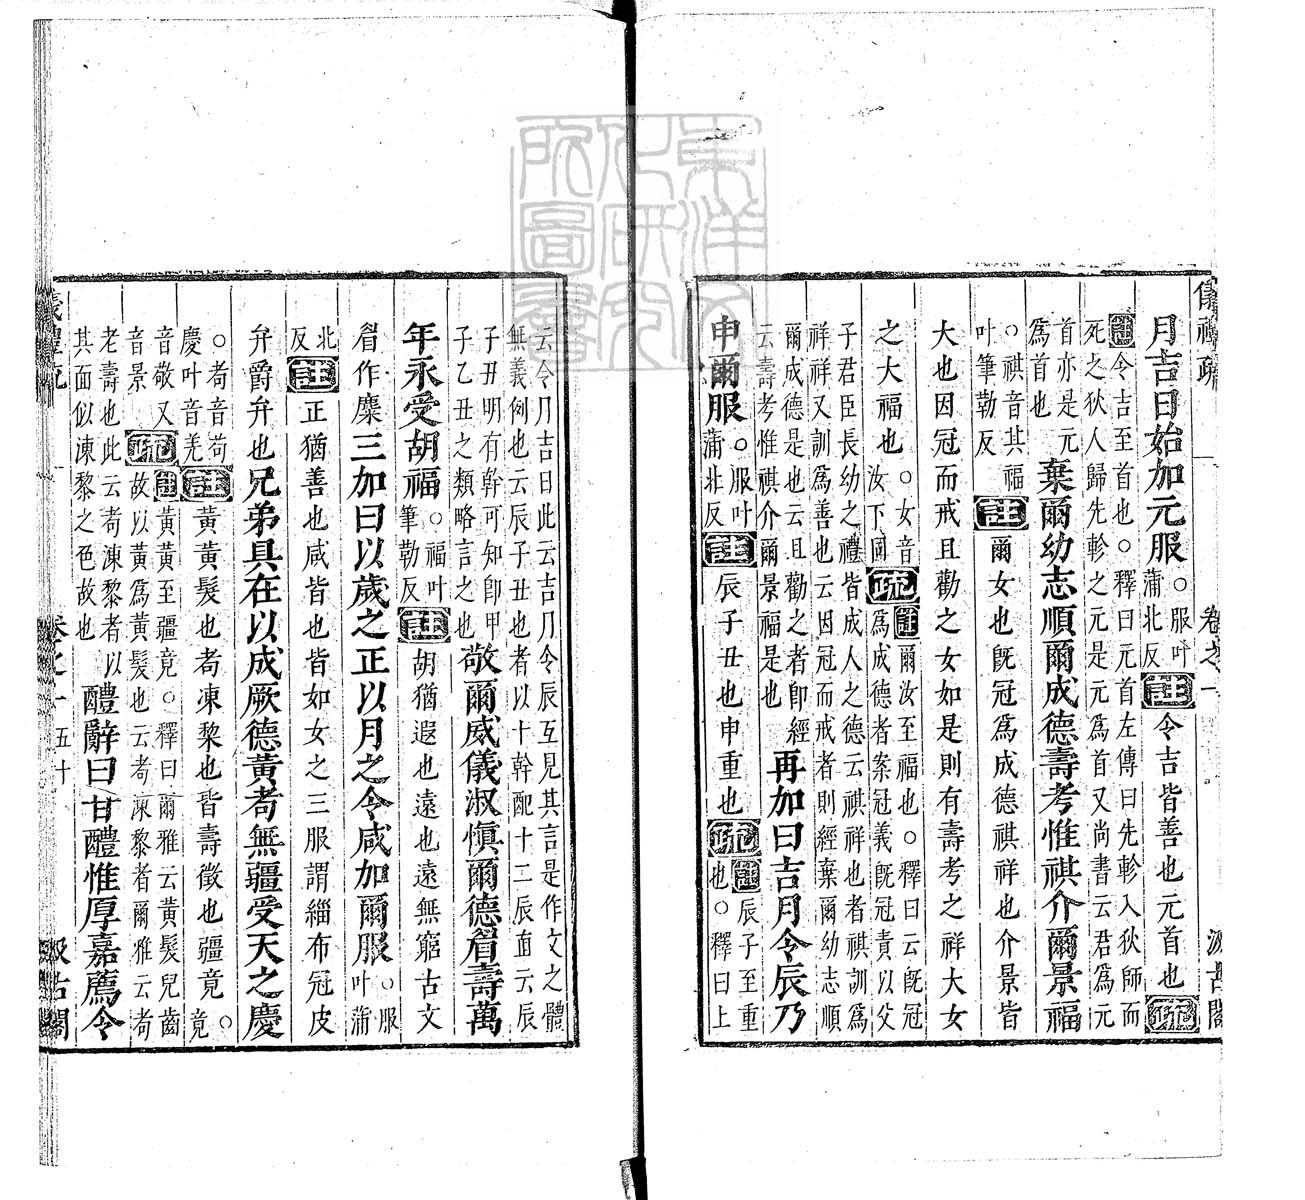 儀禮疏 卷之一 汲古閣
月吉日始加元服○服叶蒲北反註令吉皆善也元首也疏
註令吉至首也○釋曰元首左傳曰先軫入狄師而
死之狄人歸先軫之元是元爲首又尚書云君爲元
首亦是元
爲首也
棄爾幼志順爾成德壽考惟祺介爾景福
○祺音其福
叶筆勒反
註爾女也旣冠爲成德祺祥也介景皆
大也因冠而戒且勸之女如是則有壽考之祥大女
之大福也○女音汝下同疏註爾汝至福也○釋曰云旣冠
爲成德者案冠義旣冠責以父
子君臣長幼之禮皆成人之德云祺祥也者祺訓爲
祥祥又訓爲善也云因冠而戒者則經棄爾幼志順
爾成德是也云且勸之者卽經
云壽考惟祺介爾景福是也
再加曰吉月令辰乃
申爾服○服叶蒲北反註辰子丑也申重也疏註辰子至重
也○釋曰上
云令月吉日此云吉月令辰互見其言是作文之體
無義例也云辰子丑也者以十幹配十二辰直云辰
子丑明有幹可知卽甲
子乙丑之類略言之也
敬爾威儀淑愼爾德眉壽萬
年永受胡福○福叶筆勒反註胡猶遐也遠也遠無窮古文
眉作麋三加曰以歲之正以月之令咸加爾服○服叶蒲
北反註正猶善也咸皆也皆如女之三服謂緇布冠皮
弁爵弁也兄弟具在以成厥德黃耇無疆受天之慶
○耇音苟
慶叶音羌
註黃黃髮也耇凍黎也皆壽徵也疆竟○竟
音敬又
音景
疏註黃黃至疆竟○釋曰爾雅云黃髮兒齒
故以黃爲黃髮也云耇凍黎者爾雅云耇
老壽也此云耇凍黎者以
其面似凍黎之色故也
醴辭曰甘醴惟厚嘉薦令
儀禮疏 卷之一 五十 汲古閣
東洋文化研究所圖書